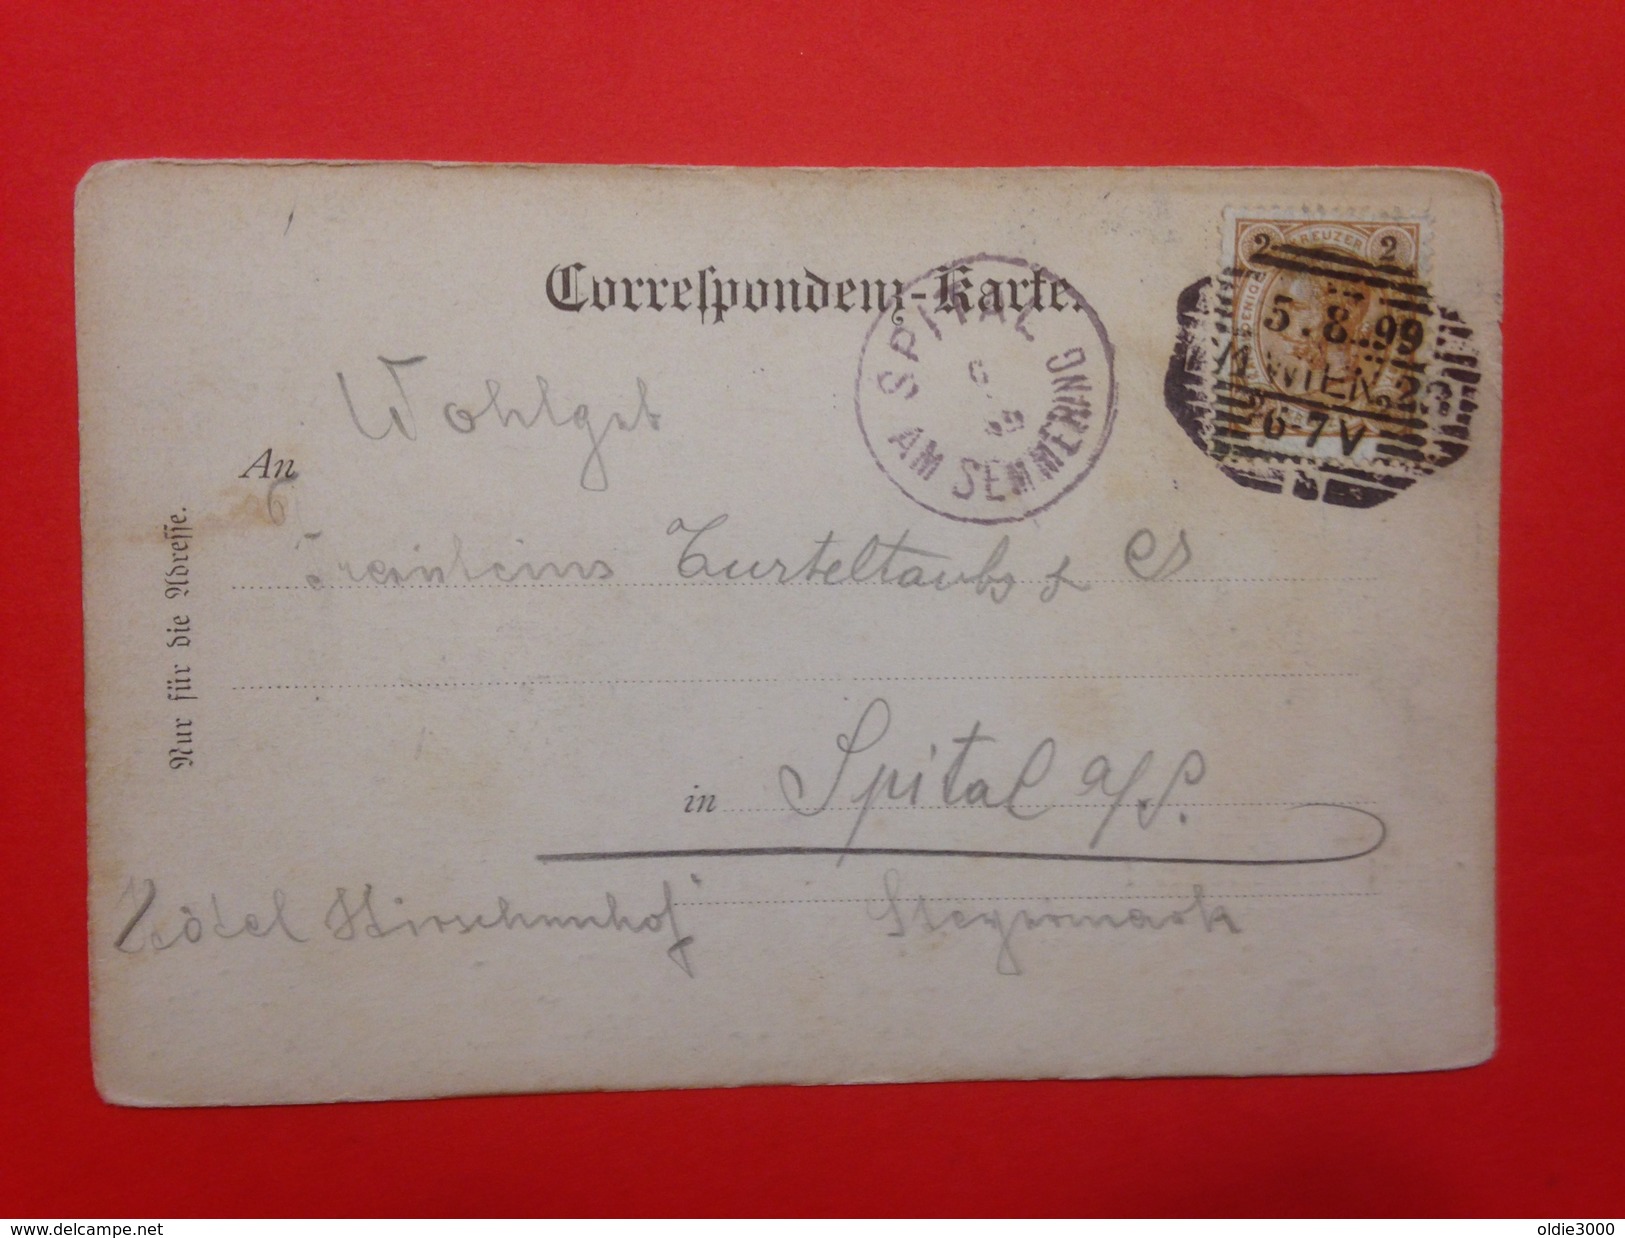 Correspondenz-Karte.
SPITAL AM SEMMERING
6
99
2 KREUZER 2
5.8.99
WIEN
6-7V
Wohlgeb
An
Turteltaubs &
Nur für die Adresse.
in Spital a/S.
Hôtel Hirschenhof"
Steyermark
delcampe.net
oldie3000